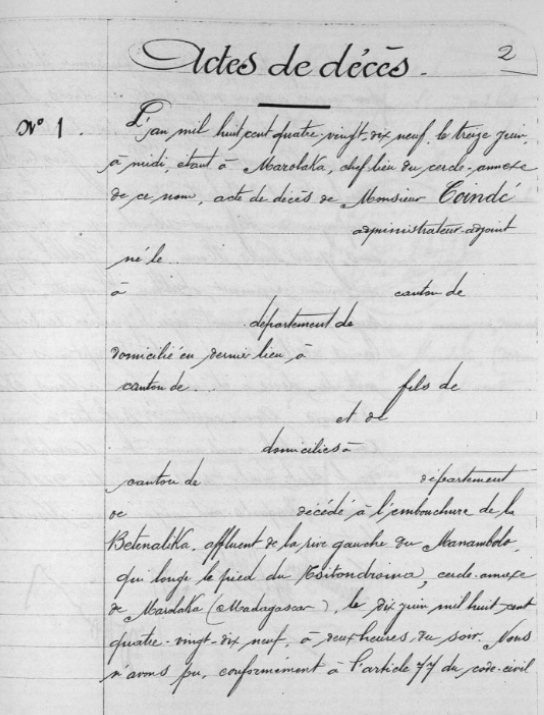 2
Actes de décès.
N° 1.
L'an mil huit cent quatre-vingt-dix neuf, le treize juin,
à midi, étant à Marolaka, chef lieu du cercle-annexe
de ce nom, acte de décès de Monsieur Coindé
administrateur-adjoint
né le
à canton de
département de
domicilié en dernier lieu à
canton de fils de
et de
domiciliés à
canton de département
de décédé à l'embouchure de la
Betenalika, affluent de la rive gauche du Manambolo,
qui longe le pied du Tsitondroina, cercle-annexe
de Marolaka (Madagascar), le dix juin mil huit cent
quatre-vingt-dix neuf, à deux heures du soir. Nous
n'avons pu, conformément à l'article 77 du code civil